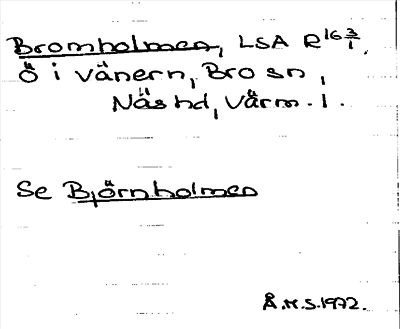 Bromholmen, LSA R16 3/1.
Ö i Vänern, Bro sn,
Näs hd, Värm. l.
Se Björnholmen
Å.H.S. 1972.